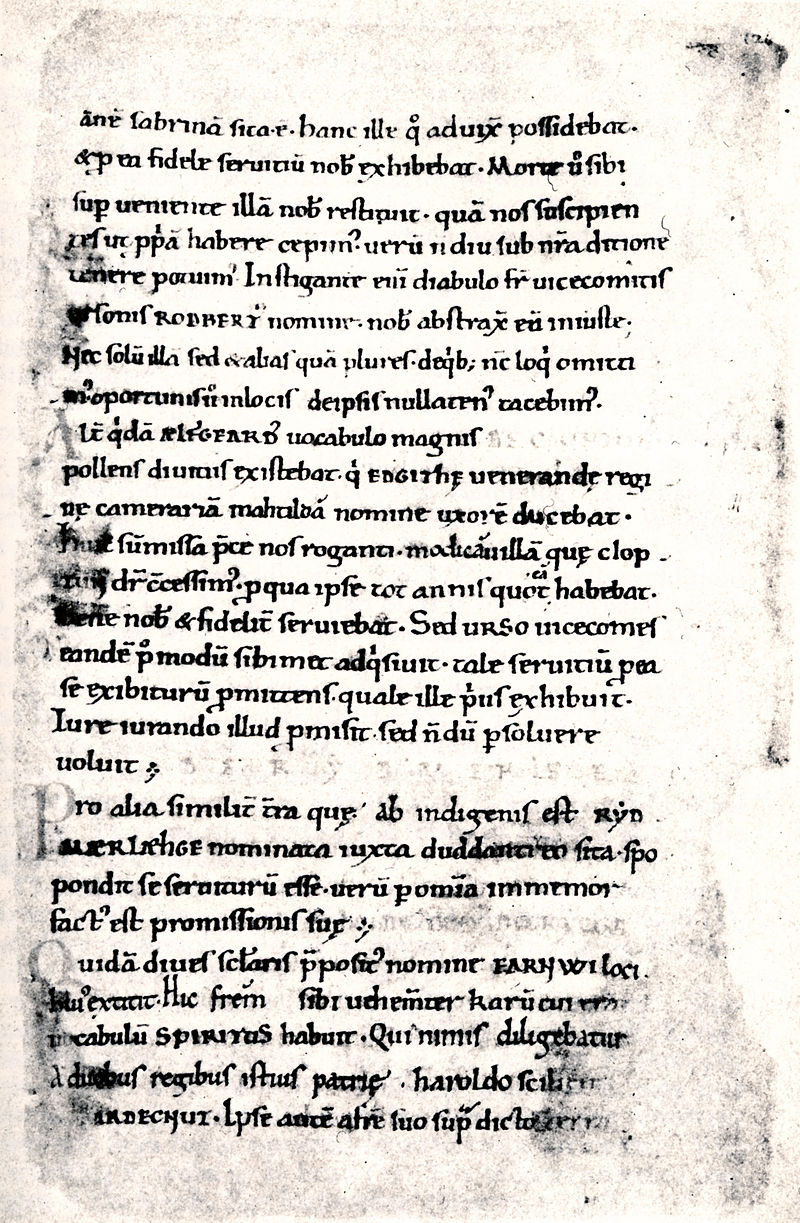 ānē sabrinā sita·ē· hanc ille qͦ aduixͭ possidebat·
& ꝑ ea fidele seruitiū nob̄ exhibebat. Morte ůsibi
sup̱ ueniente illā nob̄ restituit· quā nos suscipien
tes ut ꝓpͥā habere cepim᾽· uerū ñ diu sub nr̄a ditione
tenere potuim᾽ Instigante eni diabulo fr̄ uicecomitis
ursonis RODBERT᾽ nomine· nob̄ abstraxͭ eā iniuste·
Nec solū illā sed & alias quā plures· deqͥb; nc̄ loqͥ omitti
m᾽· oportunis ů inlocis deipsis nullaten᾽ tacebim᾽.
Alt̄ qͥdā ÆLFGEARD᾽ uocabulo magnis
pollens diuitiis existebat· qͥ EDGITHĘ uenerandę regi
nę camerariā mahtildā nomine uxorē ducebat·
Huic sūmissa p̄ce nos roganti· modicā uillā quę clop
dr̄ c̄cessim᾽· ꝑ qua ipse tot annis quot eā habebat·
bene nob̄ & fidelit̄ seruiebat· Sed URSO uicecomes
eandē pͦ modū sibimet adqͥsiuit· tale seruitiū ꝑ ea
se exibiturū ꝓmittens· quale ille pͥus exhibuit·
Iure iurando illud ꝓmisit· sed ñdū ꝑsoluere
uoluit ;
Pro alia similit̄ t̄ra quę ab indigenis est RYD
MÆRLÆHGE nominata iuxta duddantreo sita· spo
pondit se seruiturū esse· uerū ꝑ omīa immemor
fact᾽ est promissionis suę ;
Quidā diues scl̄aris p̄posit᾽ nomine EARNWI loci
hui᾽ extitit· Hic frēm sibi uehem̄ter karū cui
uocabulū SPIRITUS habuit· Qui nimis diligebatur
A duobus regibus istius patrię· haroldo scilicet
HARDECNUT· Ipse autē afrē suo sup̄ dicto